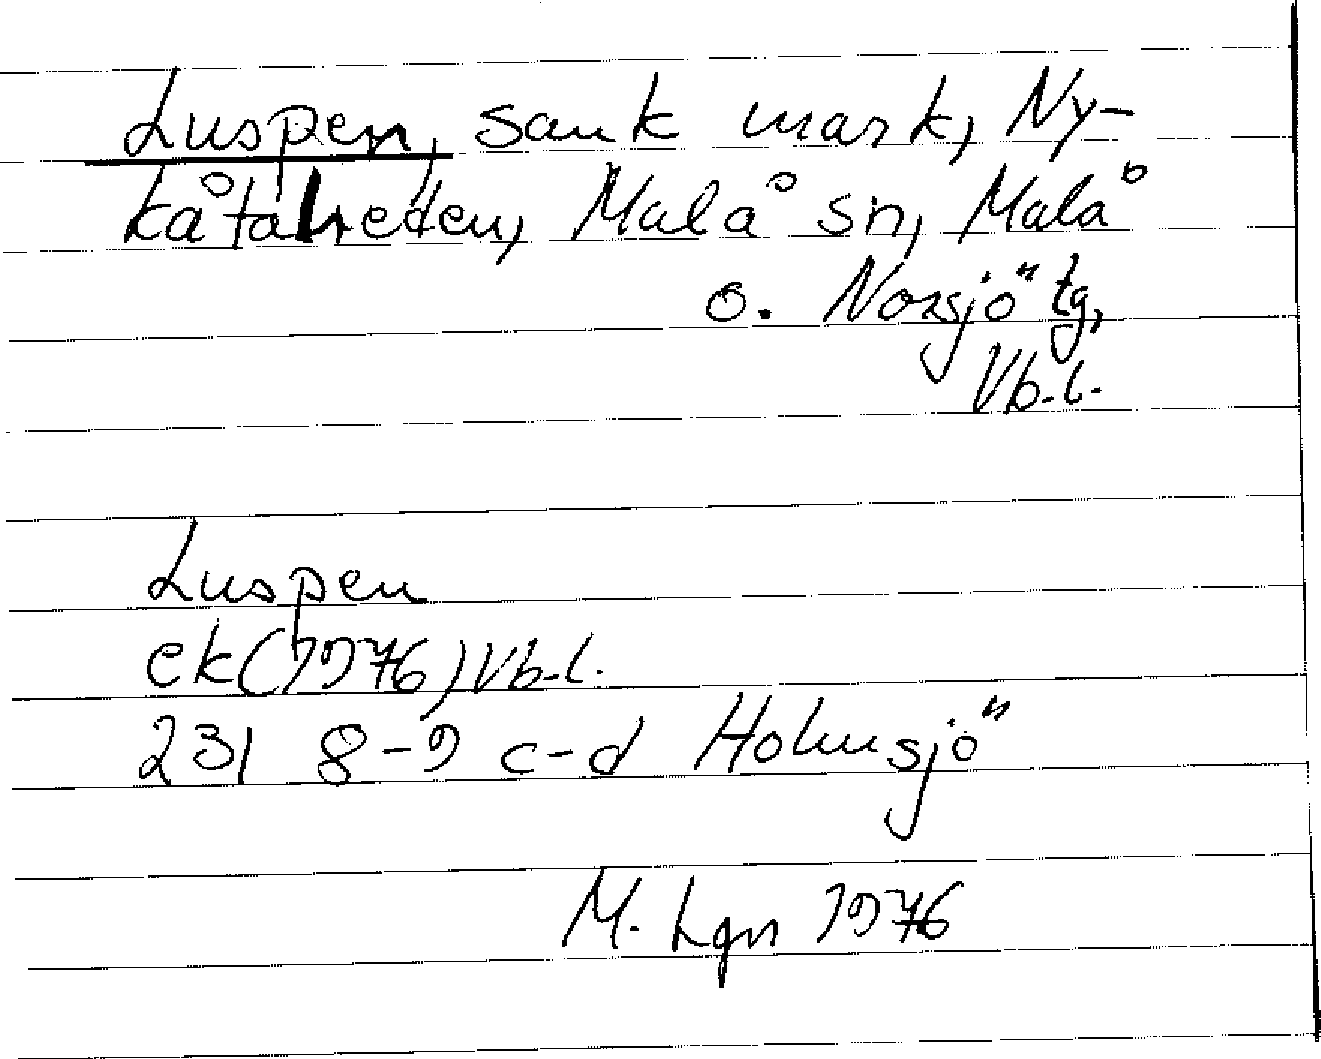 Luspen, sank mark, Ny-
kåtaheden, Malå sn, Malå
o. Norsjö tg,
Vb.l.
Luspen
ek(1976)Vb.l.
23I 8-9 c-d Holmsjö
M. Lgn 1976